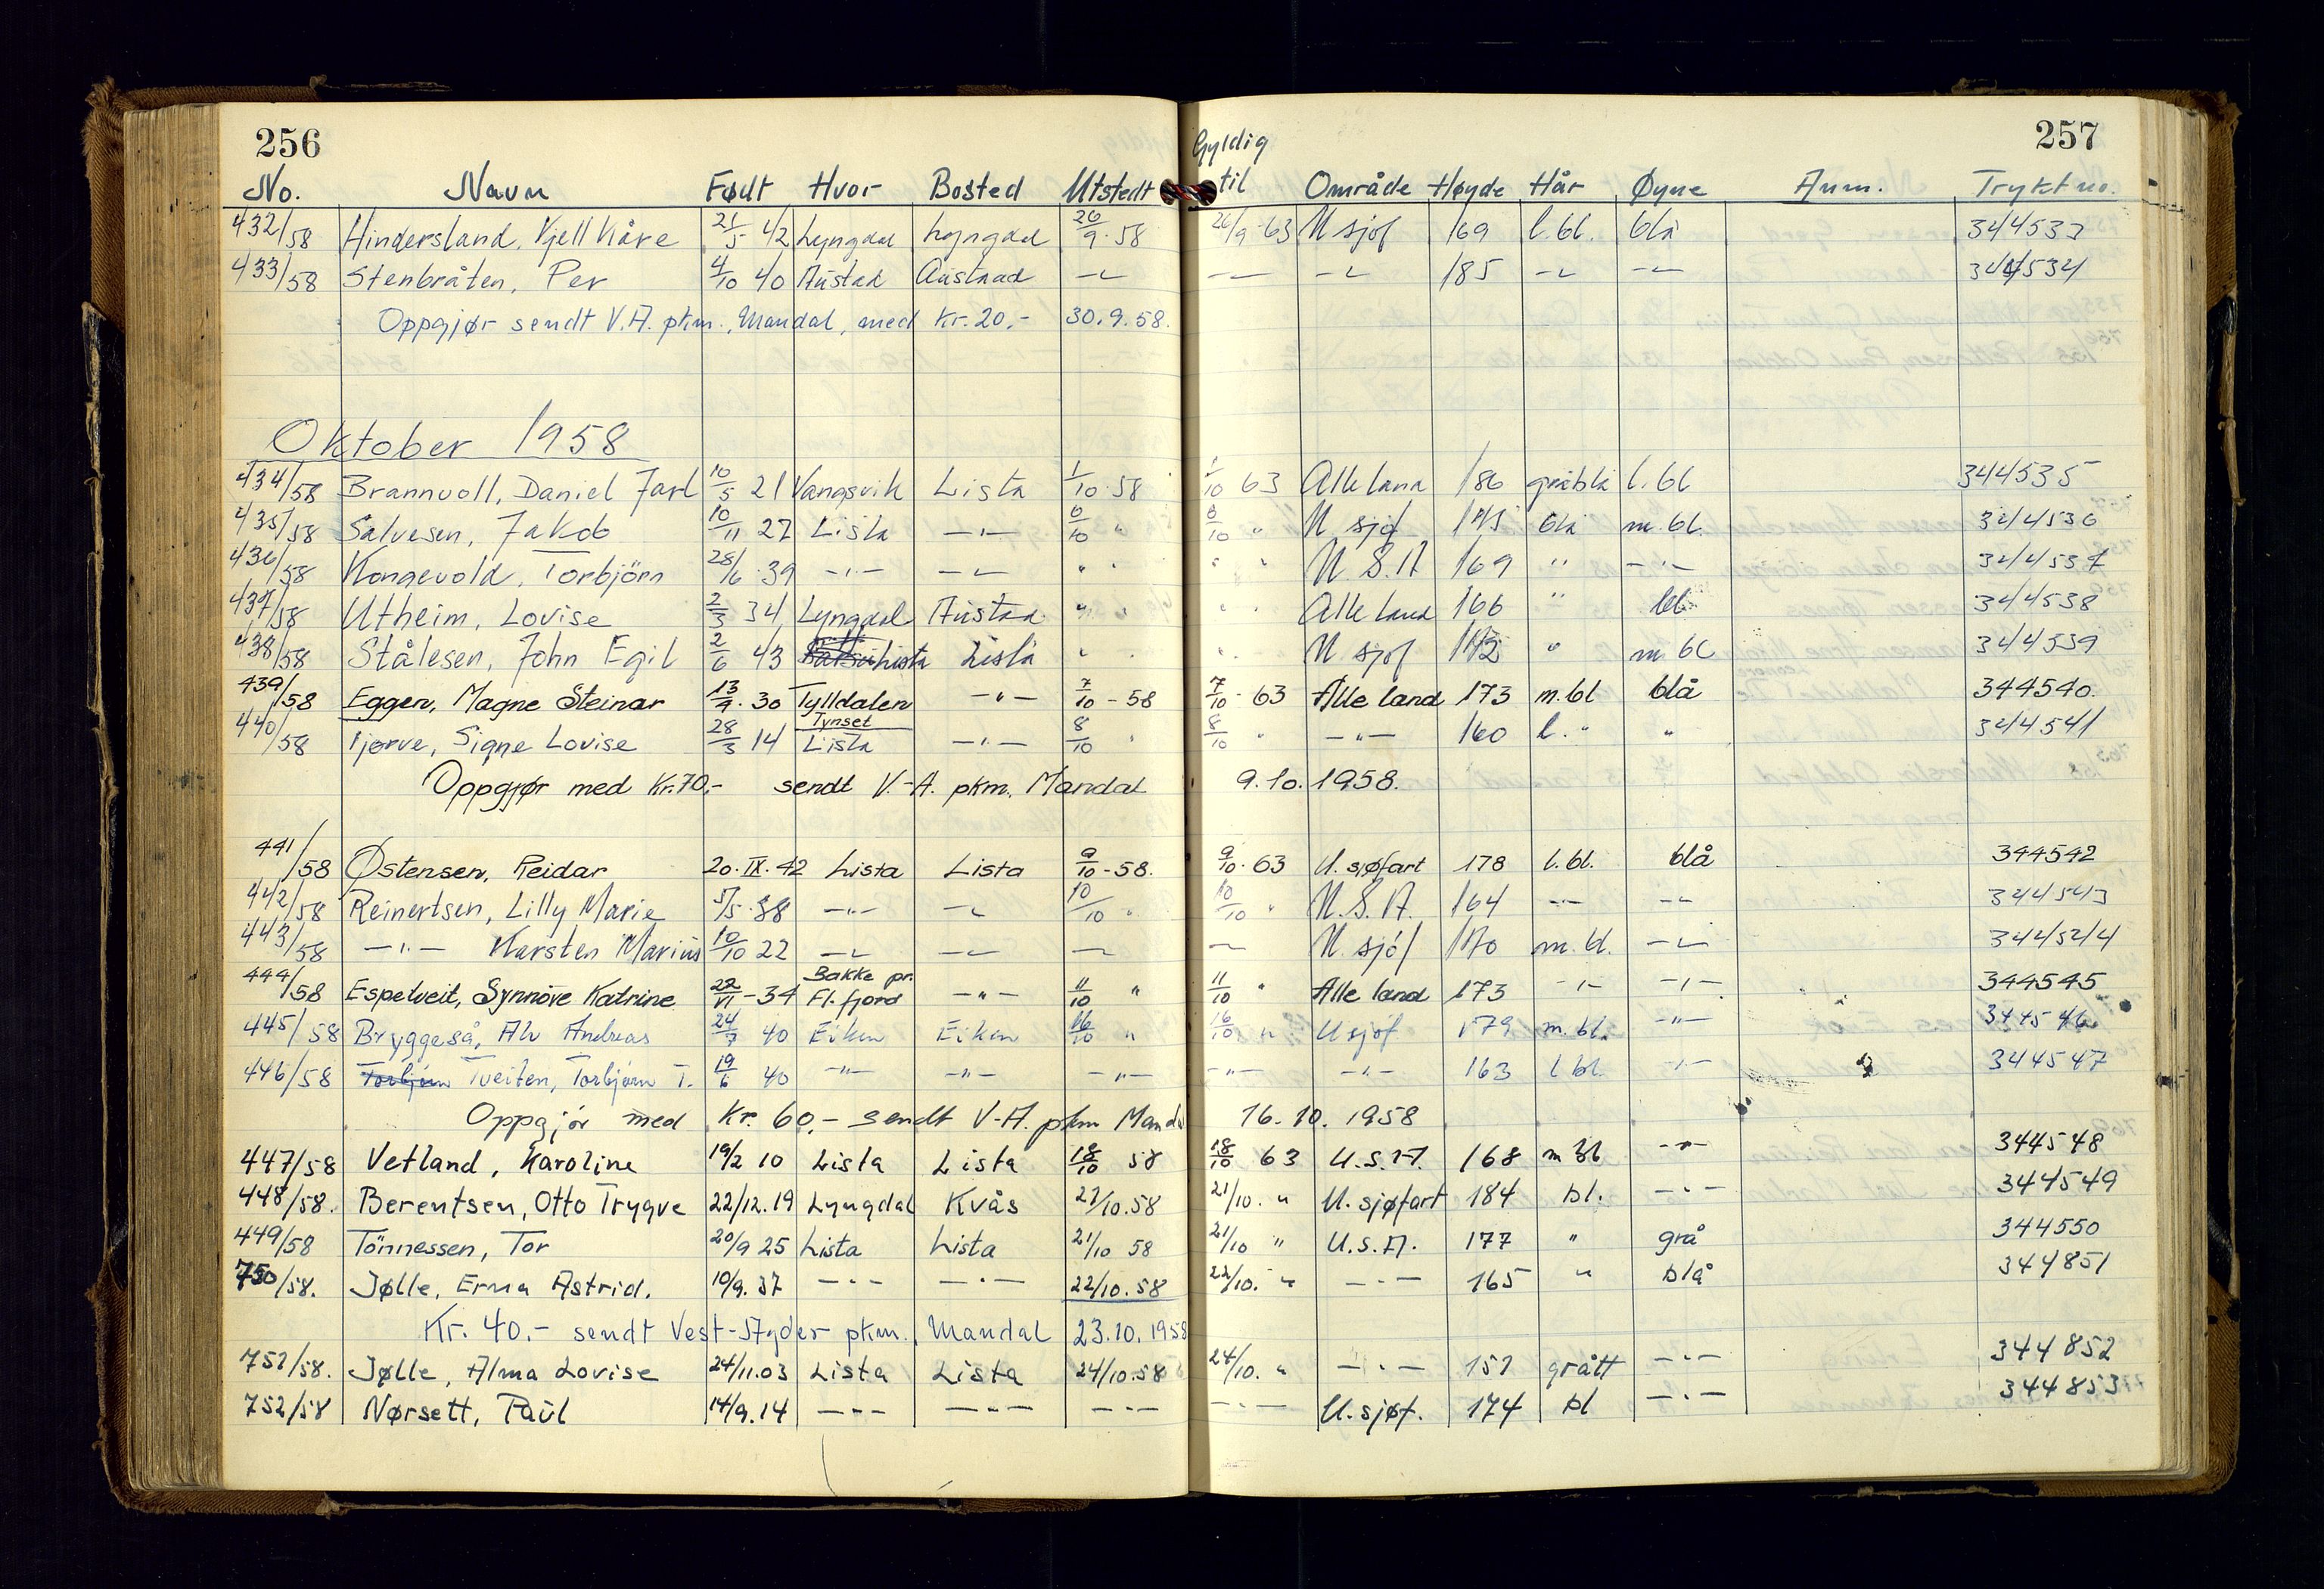 256 Gyldig 257
No. Navn Født Hvor Bosted Utstedt til Område Høyde Hår Øyne Anm. Trykt no.
432/58 Hindersland, Kjell Kåre 21/5 42 Lyngdal Lyngdal 26/9.58 26/9-63 U sjøf 169 l.bl. blå 344533
433/58 Stenbråten, Per 4/10 40 Austad Austaad -"- -"- -"- 185 -"- -"- 344534
Oppgjør sendt V.A. pkm., Mandal, med Kr. 20.- 30.9.58.
Oktober 1958
434/58 Brannvoll, Daniel Jarl 10/5 21 Vangsvik Lista 1/10.58 1/10 63 Alle land 186 gråblå l.bl 344535
435/58 Salvesen, Jakob 10/11 27 Lista -"- 6/10 " 6/10 " U sjøf 175 blå m.bl. 344536
436/58 Kongevold, Torbjörn 28/6.39 -"- -"- " " " " U.S.A 169 " -"- 344537
437/58 Utheim, Lovise 2/3 34 Lyngdal Austad " " " " Alle land 166 " bl. 344538
438/58 Stålesen, John Egil 2/6 43 Lista Lista " " " " U sjøf 172 " m bl 344539
439/58 Eggen, Magne Steinar 13/9.30 Tylldalen Tynset -"- 7/10-58 7/10-63 Alle land 173 m.bl blå 344540.
440/58 Tjørve, Signe Lovise 28/3 14 Lista -"- 8/10 " 8/10 " -"- 160 l." " 344541
Oppgjør med Kr.70.- sendt V.-A. pkm. Mandal 9.10.1958.
441/58 Østensen, Reidar 20.IX.42 Lista Lista 9/10-58. 9/10.63 U.sjøfart 178 l.bl. blå 344542
442/58 Reinertsen, Lilly Marie 5/5.38 -"- -"- 10/10 " 10/10 " U.S.A. 164 -"- -"- 344543
443/58 -"- Karsten Marius 10/10 22 -"- -"- -"- -"- U sjöf 170 m.bl. -"- 344544
444/58 Espetveit, Synnöve Katrine 22/VI-34 Bakke pr. Fl.fjord -"- 11/10 " 11/10 " Alle land 173 -"- -"- 344545
445/58 Bryggeså, Alv Andreas 24/7 40 Eiken Eiken 16/10 " 16/10 " U sjøf 179 m.bl. -"- 344546
446/58 Torbjørn Tveiten, Torbjørn T. 19/6 40 -"- -"- -"- -"- -"- 163 l bl. -"- 344547
Oppgjör med Kr. 60.- sendt V-A. pkm Mandal 16.10.1958
447/58 Vetland, Karoline 19/2 10 Lista Lista 18/10 58 18/10 63 U.S.A. 168 m bl -"- 344548
448/58. Berentsen, Otto Trygve 22/12.19 Lyngdal Kvås 21/10.58 21/10. " U.sjøfart 184 bl. -"- 344549
449/58 Tönnessen, Tor 20/9 25 Lista Lista 21/10 58 21/10 " U.S.A. 177 " grå 344550
750/58. Jølle, Erna Astrid. 10/9.37 -"- -"- 22/10.58 22/10. " -"- 165 " blå 344851
Kr. 40.- sendt Vest-Agder pkm. Mandal 23.10.1958
751/58. Jølle, Alma Lovise 24/11.03 Lista Lista 24/10.58 24/10. " -"- 151 grått -"- 344852
752/58 Nørsett, Paul 14/9.14 -"- -"- -"- -"- U.sjøf. 174 bl -"- 344853